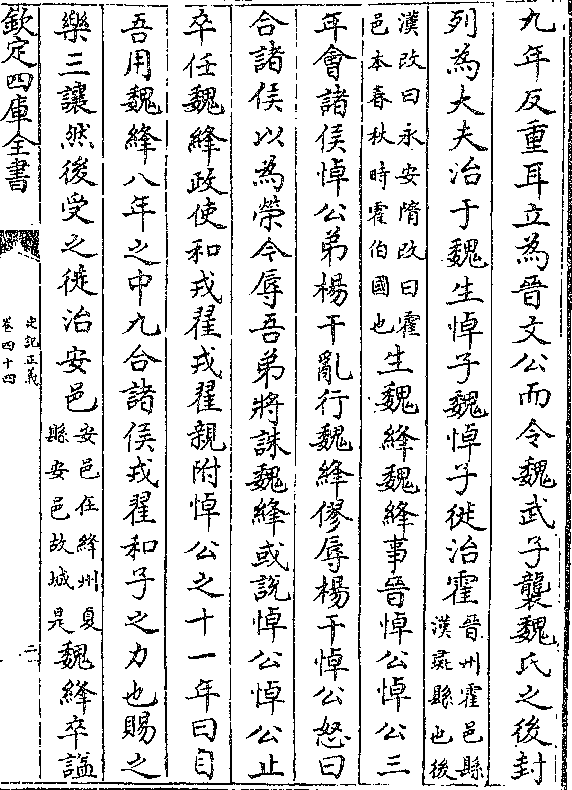 九年反重耳立為晉文公而令魏武子襲魏氏之後封
列為大夫治于魏生悼子魏悼子徙治霍晉州霍邑縣漢彘縣也後
漢改曰永安隋改曰霍邑本春秋時霍伯國也生魏絳魏絳事晉悼公悼公三
年會諸侯悼公弟楊干亂行魏絳僇辱楊干悼公怒曰
合諸侯以為榮今辱吾弟將誅魏絳或說悼公悼公止
卒任魏絳政使和戎翟戎翟親附悼公之十一年曰自
吾用魏絳八年之中九合諸侯戎翟和子之力也賜之
樂三讓然後受之徙治安邑安邑在絳州夏縣安邑故城是魏絳卒謚
欽定四庫全書
史記正義
卷四十四
二